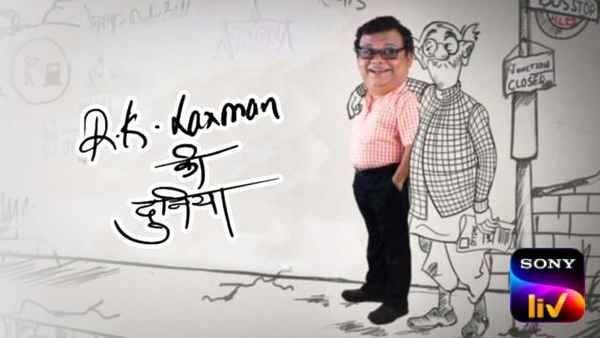 R.K. Laxman
की
दुनिया
BUS STOP
JUNCTION
CLOSED
SONY
liv